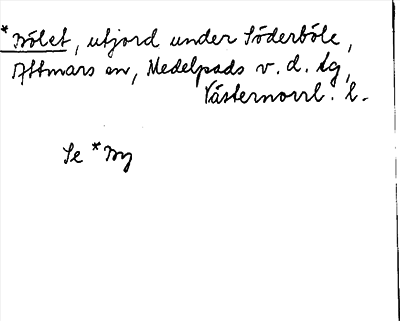 *Bölet, utjord under Söderböle,
Attmars sn, Medelpads v. d. tg,
Västernorrl. l.
Se *By